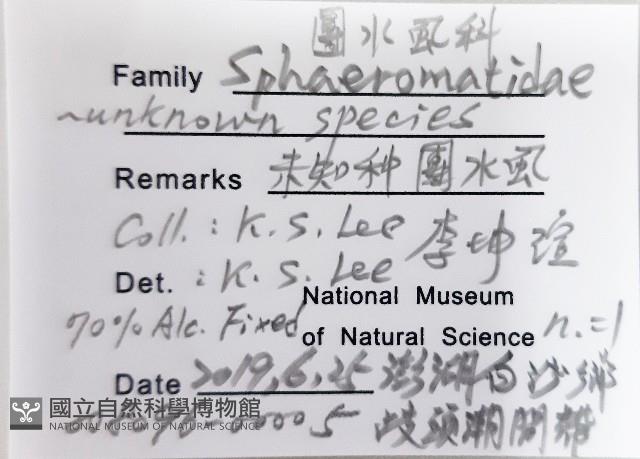 團水虱科
Family Sphaeromatidae
~unknown species
Remarks 未知种團水虱
Coll.: K. S. Lee 李坤瑄
Det. : K. S. Lee
National Museum
70% Alc. Fixed of Natural Science n.=1
Date 2019,6,25 澎湖白沙鄉
歧頭潮間雜
國立自然科學博物館
NATIONAL MUSEUM OF NATURAL SCIENCE